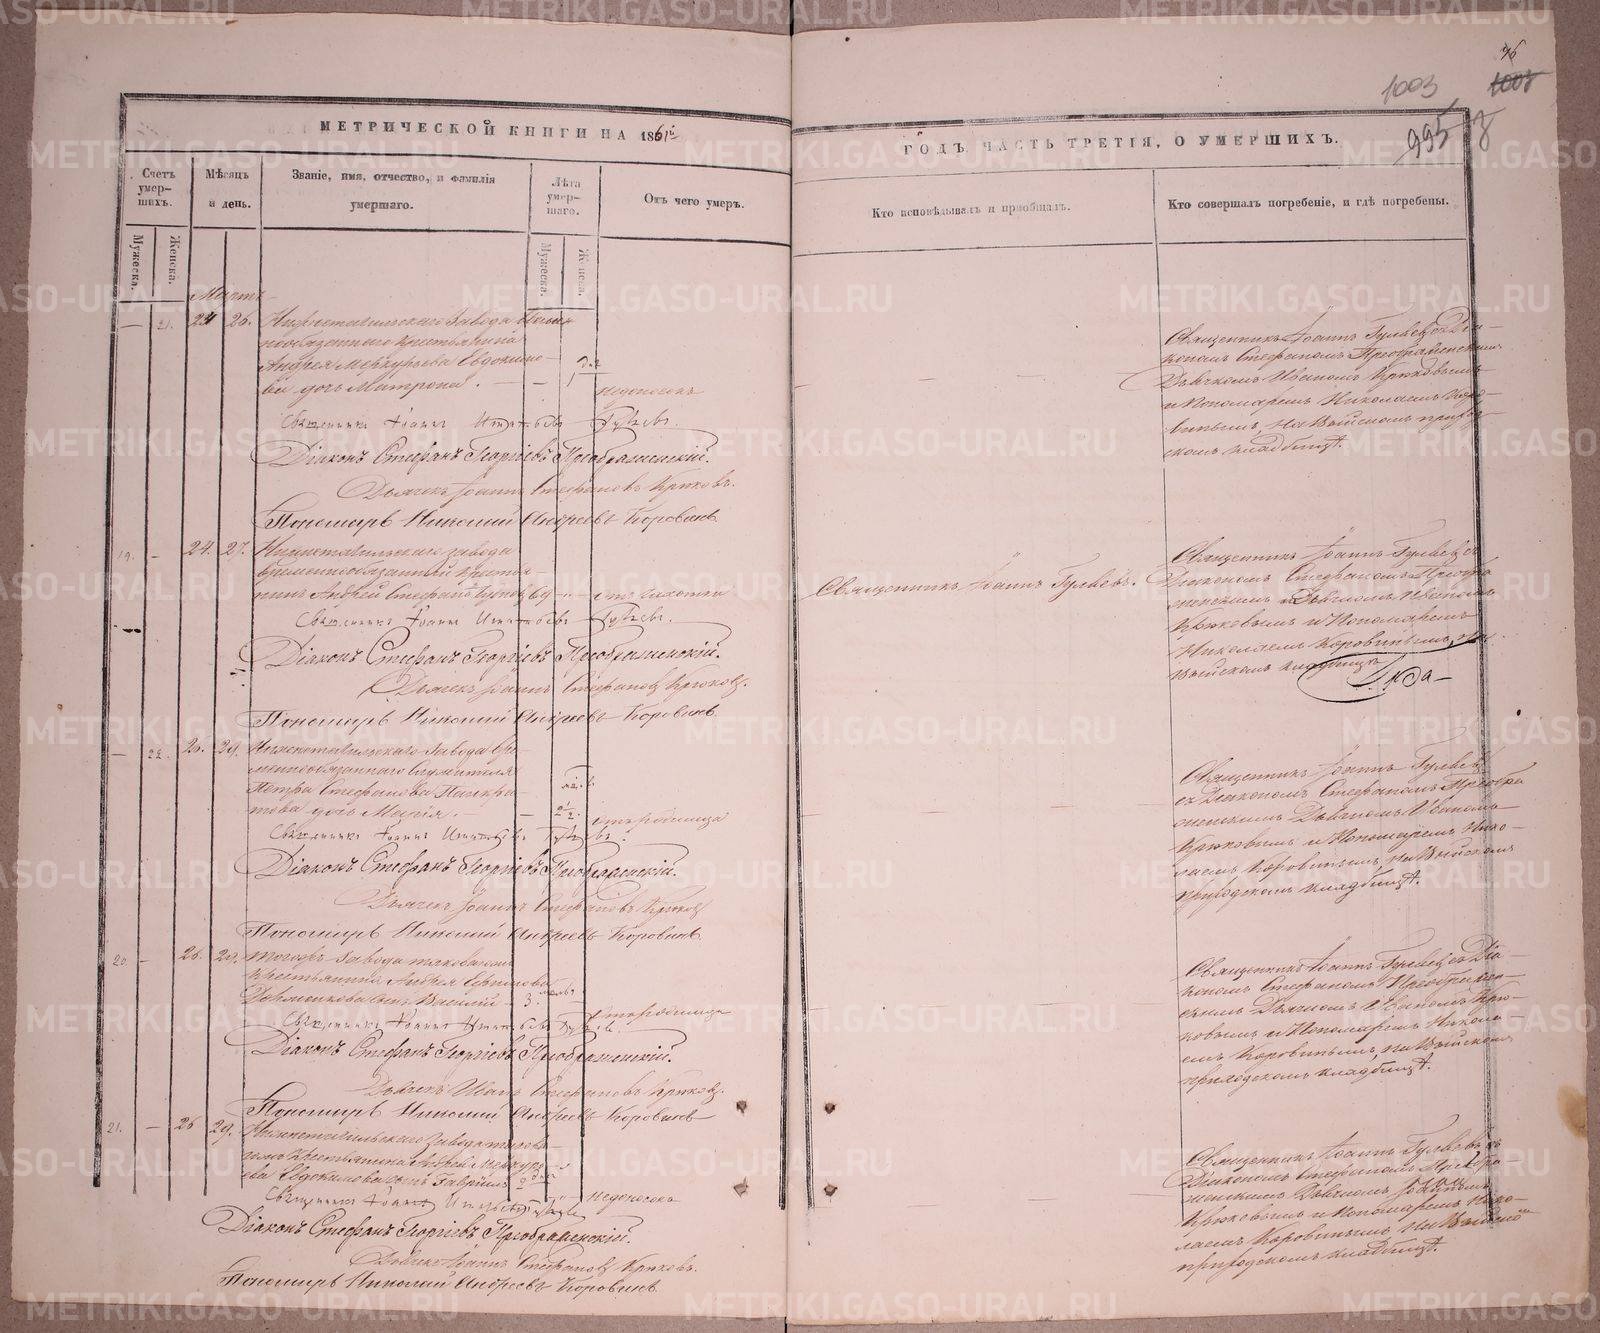 76
1003
1003
995
МЕТРИЧЕСКОЙ КНИГИ НА 1861й
ГОДЪ, ЧАСТЬ ТРЕТІЯ, О УМЕРШИХЪ.
Счетъ умер-
шихъ.
Мужеска.
Женска.
Мѣсяцъ
и день.
Званіе, имя, отчество, и фамилія
умершаго.
Лѣта
умер-
шаго.
Мужеска.
Женска.
Отъ чего умеръ.
Кто исповѣдывалъ и пріобщалъ.
Кто совершалъ погребеніе, и гдѣ погребены.
Мартъ
— 21. 24 26. Нижнетагильскаго завода
крестьянина
Андрея Меркурьева Евдокимо-
ва дочь Матрона. — — 1
недоносокъ
Священникъ Іоаннъ Гулѣевъ съ Діа-
кономъ Стефаномъ Преображенскимъ
Дьячкомъ Иваномъ Крюковымъ
и Пономаремъ Николаемъ Коро-
винымъ, на Выйскомъ приход-
скомъ кладбищѣ.
Священникъ Іоаннъ Игнатьевъ Гулѣевъ.
Діаконъ Стефанъ Георгіевъ Преображенскій.
Дьячекъ Іоаннъ Стефановъ Крюковъ.
Пономарь Николай Андреевъ Коровинъ
19. — 24. 27. Нижнетагильскаго завода
временнообязанный кресть-
янинъ Андрей Стефановъ
отъ чахотки
Священникъ Іоаннъ Гулѣевъ.
Священникъ Іоаннъ Гулѣевъ съ
Діакономъ Стефаномъ Преобра
женскимъ и Дьячкомъ Иваномъ
Крюковымъ и Пономаремъ
Николаемъ Коровинымъ, на
Выйскомъ кладбищѣ
Священникъ Іоаннъ Игнатьевъ Гулѣевъ.
Діаконъ Стефанъ Георгіевъ Преображенскій.
Дьячекъ Іоаннъ Стефановъ Крюковъ.
Пономарь Николай Андреевъ Коровинъ.
— 22. 26. 29. Нижнетагильскаго завода вре-
меннообязаннаго служителя
Петра Стефанова Панкра-
това дочь Марія. — — 2½.
отъ родимца
Священникъ Іоаннъ Гулѣевъ
съ Діакономъ Стефаномъ Преобра
женскимъ Дьячкомъ Иваномъ
Крюковымъ и Пономаремъ Нико-
лаемъ Коровинымъ, на Выйскомъ
приходскомъ кладбищѣ.
Священникъ Іоаннъ Игнатьевъ Гулѣевъ.
Діаконъ Стефанъ Георгіевъ Преображенскій.
Дьячекъ Іоаннъ Стефановъ Крюковъ
Пономарь Николай Андреевъ Коровинъ.
20. — 26. 29. Тогожъ завода таковагожъ
крестьянина Андрея
сынъ Василій 3.
отъ родимца
Священникъ Іоаннъ Гулѣевъ съ Діа-
кономъ Стефаномъ Преображен-
скимъ Дьячкомъ Иваномъ Крю-
ковымъ и Пономаремъ Никола-
емъ Коровинымъ, на Выйскомъ
приходскомъ кладбищѣ.
Священникъ Іоаннъ Игнатьевъ Гулѣевъ.
Діаконъ Стефанъ Георгіевъ Преображенскій.
Дьячекъ Иванъ Стефановъ Крюковъ.
Пономарь Николай Андреевъ Коровинъ
21. — 26 29. Нижнетагильскаго завода
крестьянина Андрея Меркурь-
ева Евдокимова сынъ Гавріилъ 2
недоносокъ
Священникъ Іоаннъ Гулѣевъ съ
Діакономъ Стефаномъ Преобра-
женскимъ Дьячкомъ Іоанномъ
Крюковымъ и Пономаремъ Нико-
лаемъ Коровинымъ на Выйскомъ
приходскомъ кладбищѣ.
Священникъ Іоаннъ Игнатьевъ Гулѣевъ
Діаконъ Стефанъ Георгіевъ Преображенскій.
Дьячекъ Іоаннъ Стефановъ Крюковъ.
Пономарь Николай Андреевъ Коровинъ.
METRIKI.GASO-URAL.RU